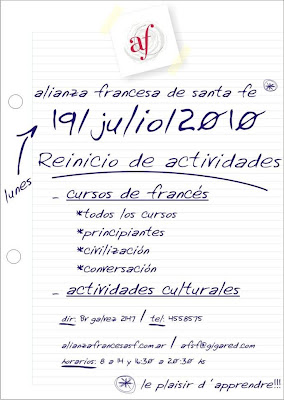 af
alianza francesa de santa fe
19/julio/2010
lunes
Reinicio de actividades
_ cursos de francés
*todos los cursos
*principiantes
*civilización
*conversación
_ actividades culturales
dir: Br galvez 2147 / tel: 4558575
alianzafrancesasf.com.ar / afsf@gigared.com
horarios: 8 a 14 y 16:30 a 20:30 hs
le plaisir d'apprendre!!!